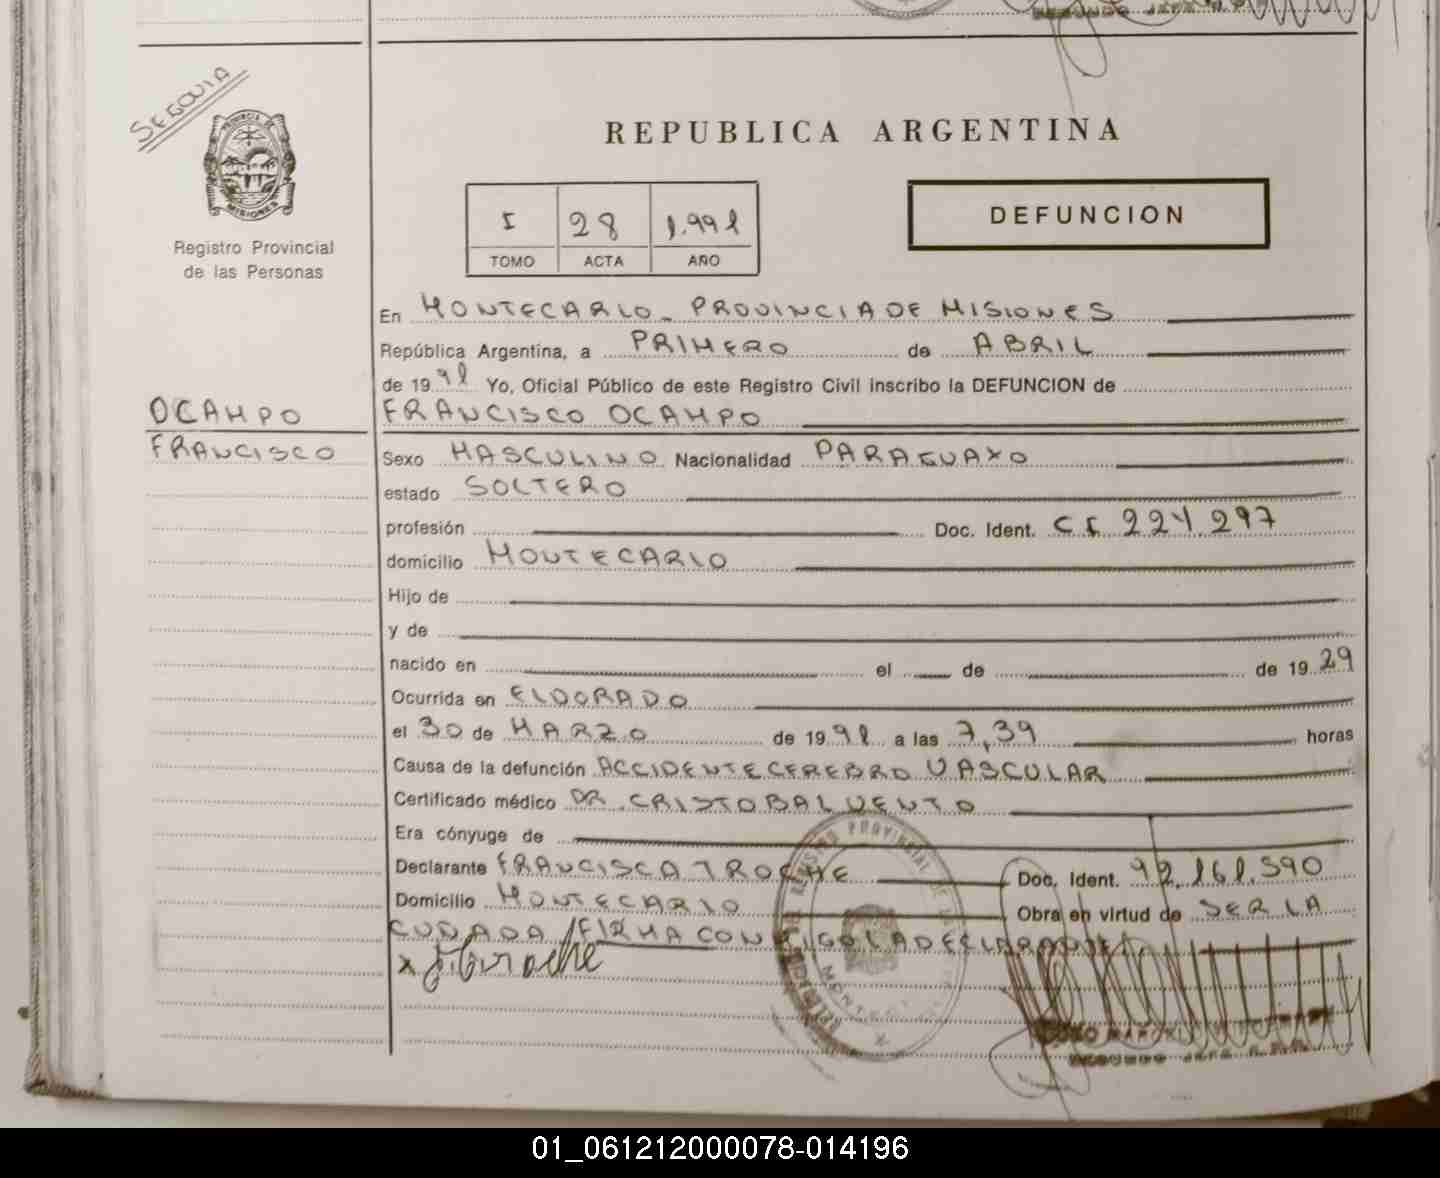 SEGOVIA
PROVINCIA DE
MISIONES
Registro Provincial
de las Personas
REPUBLICA ARGENTINA
I 28 1.991
TOMO ACTA AÑO
DEFUNCION
En MONTECARLO - PROVINCIA DE MISIONES
República Argentina, a PRIMERO de ABRIL
de 1991 Yo, Oficial Público de este Registro Civil inscribo la DEFUNCION de
OCAMPO
FRANCISCO
FRANCISCO OCAMPO
Sexo MASCULINO Nacionalidad PARAGUAYO
estado SOLTERO
profesión Doc. Ident. CI 224.297
domicilio MONTECARLO
Hijo de
y de
nacido en el de de 1929
Ocurrida en ELDORADO
el 30 de MARZO de 1991 a las 7,39 horas
Causa de la defunción ACCIDENTE CEREBRO VASCULAR
Certificado médico DR. CRISTOBAL VENTO
Era cónyuge de
Declarante FRANCISCA TROCHE Doc. Ident. 92.161.590
Domicilio MONTECARLO Obra en virtud de SER LA
CUÑADA / FIRMA CONMIGO LA DECLARANTE
x F. Troche
SEGUNDO JEFE
01_061212000078-014196